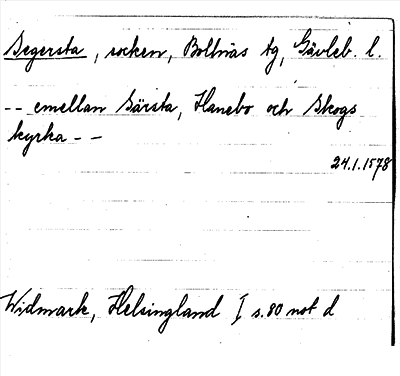 Segersta, socken, Bollnäs tg, Gävleb. l.
-- emellan Särsta, Hanebo och Skogs
kyrka --
24.1.1578
Widmark, Helsingland I s. 80 not d